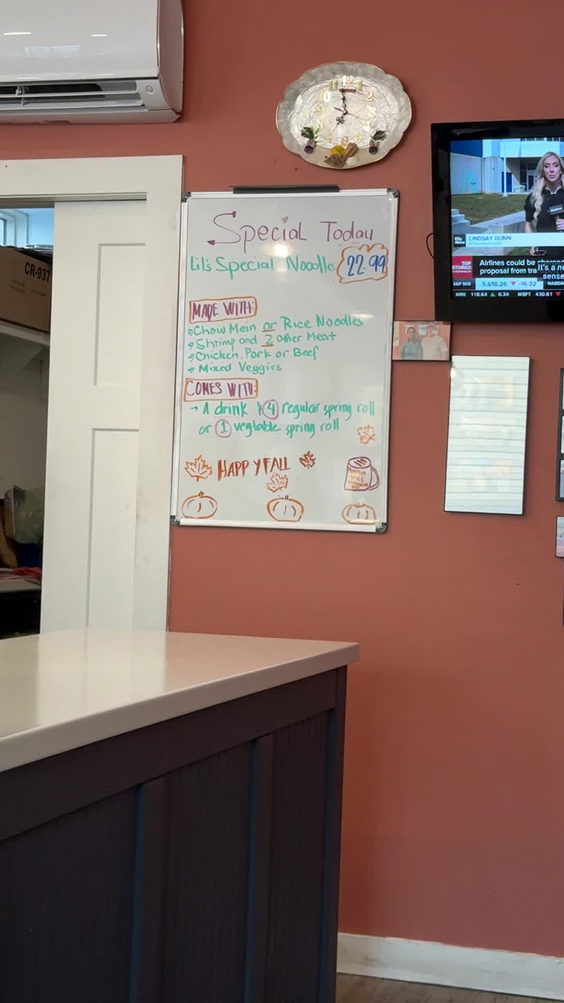 CR-937
Special Today
Lil's Special Noodle 22.99
MADE WITH:
Chow Mein or Rice Noodles
Shrimp and 2 other Meat
Chicken, Pork or Beef
Mixed Veggies
COMES WITH:
→ A drink & 4 regular spring roll
or 1 vegtable spring roll
HAPPY FALL
LINDSAY DUNN
TOP
STORIES
Airlines could be
proposal from tra
It's a ne
sense
S&P 500
5,618.26 ▼ -16.32
NASDA
118.64 ▲ 0.34 MSFT ▼